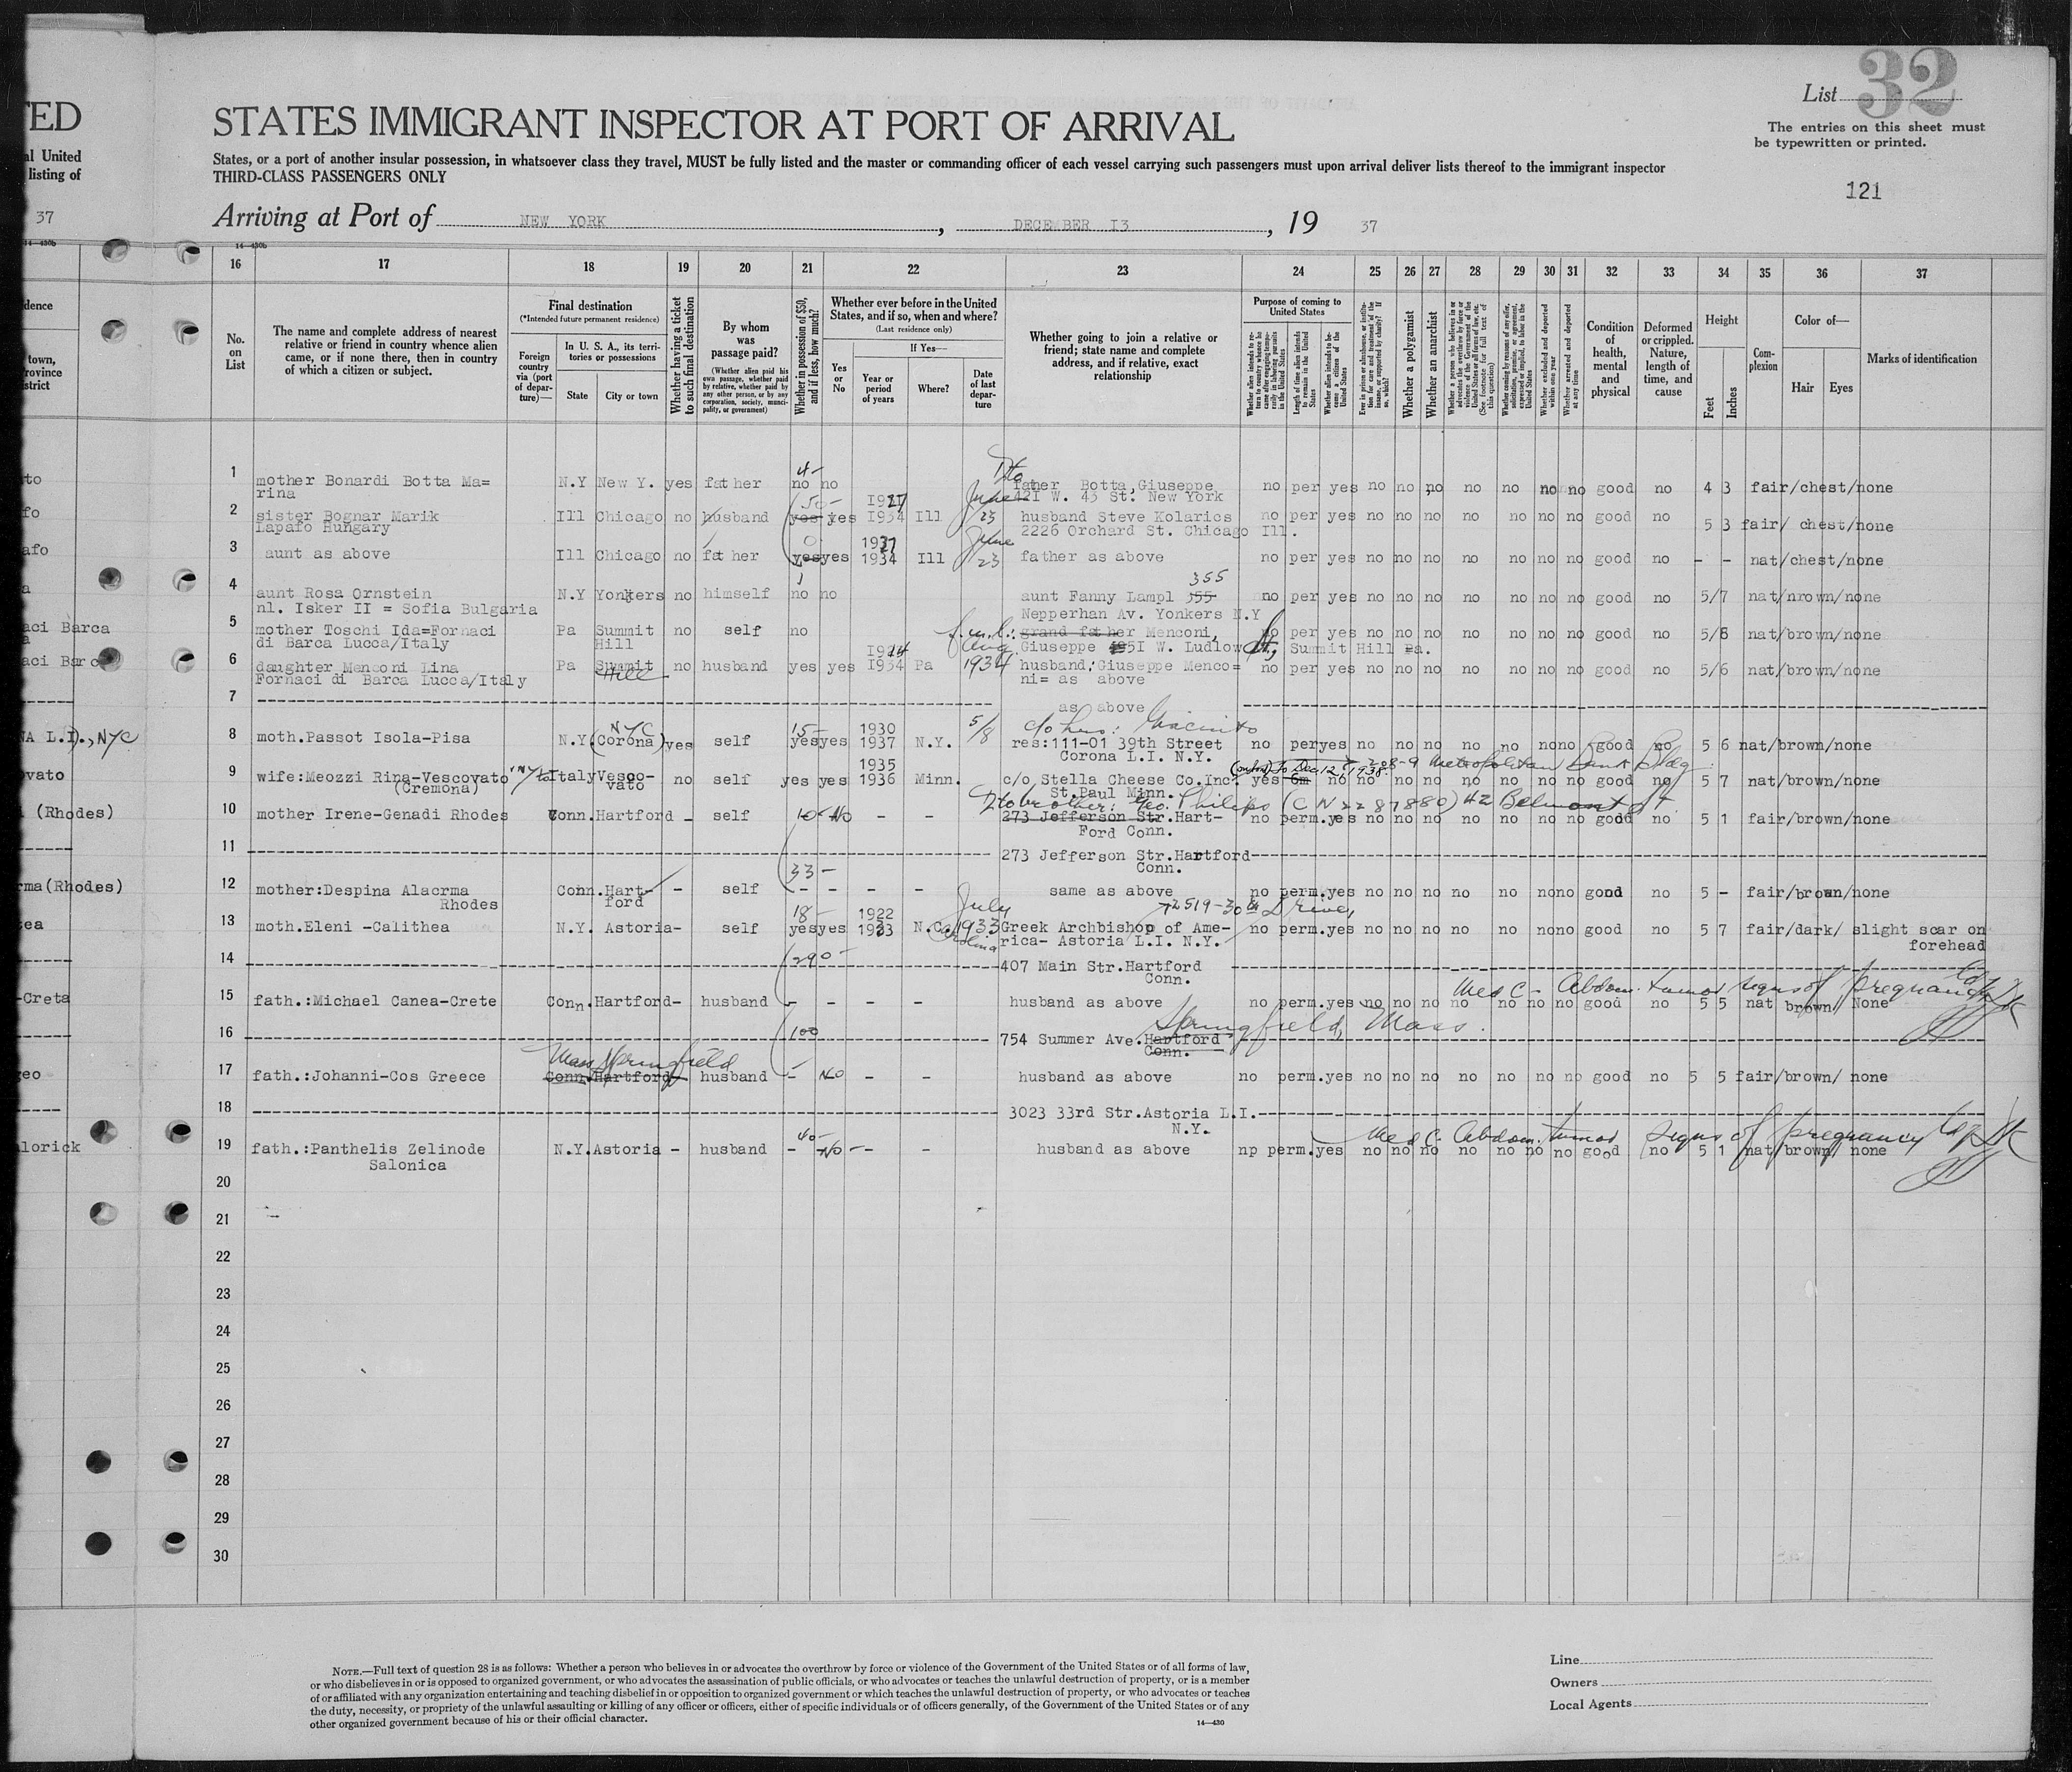 TED
al United
listing of
37
14—430b
dence
town,
rovince
strict
to
fo
afo
a
aci Barca
a
aci Barc
NA L.I.), NYC
ovato
i (Rhodes)
rma(Rhodes)
ea
-Creta
geo
alorick
List 32
The entries on this sheet must
be typewritten or printed.
121
STATES IMMIGRANT INSPECTOR AT PORT OF ARRIVAL
States, or a port of another insular possession, in whatsoever class they travel, MUST be fully listed and the master or commanding officer of each vessel carrying such passengers must upon arrival deliver lists thereof to the immigrant inspector
THIRD-CLASS PASSENGERS ONLY
Arriving at Port of NEW YORK, DECEMBER I3, 19 37
14—430b
16 17 18 19 20 21 22 23 24 25 26 27 28 29 30 31 32 33 34 35 36 37
No.
on
List
The name and complete address of nearest
relative or friend in country whence alien
came, or if none there, then in country
of which a citizen or subject.
Final destination
(*Intended future permanent residence)
Foreign
country
via (port
of depar-
ture)—
In U. S. A., its terri-
tories or possessions
State
City or town
Whether having a ticket
to such final destination
By whom
was
passage paid?
(Whether alien paid his
own passage, whether paid
by relative, whether paid by
any other person, or by any
corporation, society, munici-
pality, or government)
Whether in possession of $50,
and if less, how much?
Whether ever before in the United
States, and if so, when and where?
(Last residence only)
Yes
or
No
If Yes—
Year or
period
of years
Where?
Date
of last
depar-
ture
Whether going to join a relative or
friend; state name and complete
address, and if relative, exact
relationship
Purpose of coming to
United States
Whether alien intends to re-
turn to country whence he
came after engaging tempo-
rarily in laboring pursuits
in the United States
Length of time alien intends
to remain in the United
States
Whether alien intends to be-
come a citizen of the
United States
Ever in prison or almshouse, or institu-
tion for care and treatment of the
insane, or supported by charity? If
so, which?
Whether a polygamist
Whether an anarchist
Whether a person who believes in or
advocates the overthrow by force or
violence of the Government of the
United States or all forms of law, etc.
(See footnote for full text of
this question)
Whether coming by reasons of any offer,
solicitation, promise, or agreement,
expressed or implied, to labor in the
United States
Whether excluded and deported
within one year
Whether arrested and deported
at any time
Condition
of
health,
mental
and
physical
Deformed
or crippled.
Nature,
length of
time, and
cause
Height
Feet
Inches
Com-
plexion
Color of—
Hair
Eyes
Marks of identification
4-
1 mother Bonardi Botta Ma= N.Y New Y. yes father no no father Botta Giuseppe no per yes no no no no no no no good no 4 3 fair/chest/none
rina 50- 1937 June 421 W. 43 St. New York
2 sister Bognar Marik Ill Chicago no husband yes yes I934 Ill 23 husband Steve Kolarics no per yes no no no no no no no good no 5 3 fair/ chest/none
Lapafo Hungary 2226 Orchard St. Chicago Ill.
0 1937 June
3 aunt as above Ill Chicago no father yes yes 1934 Ill 23 father as above no per yes no no no no no no no good no - - nat/chest/none
355
4 aunt Rosa Ornstein N.Y Yonkers no himself no no aunt Fanny Lampl 555 no per yes no no no no no no no good no 5/7 nat/nrown/none
nl. Isker II = Sofia Bulgaria Nepperhan Av. Yonkers N.Y
5 mother Toschi Ida=Fornaci Pa Summit no self no grand father Menconi, no per yes no no no no no no no good no 5/6 nat/brown/none
di Barca Lucca/Italy Hill Aug. Giuseppe 51 W. Ludlow St, Summit Hill Pa.
6 daughter Menconi Lina Pa Summit no husband yes yes I934 Pa 1934 husband, Giuseppe Menco= no per yes no no no no no no no good no 5/6 nat/brown/none
Fornaci di Barca Lucca/Italy Hill ni= as above
7 as above
NYC 15- 1930 5/8
8 moth.Passot Isola-Pisa N.Y.(Corona) yes self yes yes 1937 N.Y. res:111-01 39th Street no per yes no no no no no no no good no 5 6 nat/brown/none
Corona L.I. N.Y.
1935 to Dec 12, 1938. 208-9 Metropolitan Bank Bldg
9 wife:Meozzi Rina-Vescovato Italy Vesco- no self yes yes 1936 Minn. c/o Stella Cheese Co.Inc. yes 6m no no no no no no no no good no 5 7 nat/brown/none
(Cremona) vato St.Paul Minn.
to brother: Geo. Philips (C N 2287880) 42 Belmont St.
10 mother Irene-Genadi Rhodes Conn. Hartford - self 10- No - - 273 Jefferson Str.Hart- no perm.yes no no no no no no no good no 5 1 fair/brown/none
Ford Conn.
11 273 Jefferson Str.Hartford
33- Conn.
12 mother:Despina Alacrma Conn.Hart- - self - - - - same as above no perm.yes no no no no no no no good no 5 - fair/brown/none
Rhodes ford
18- 1922 July 2519-30th Drive,
13 moth.Eleni -Calithea N.Y. Astoria- self yes yes 1933 N.Carolina 1933 Greek Archbishop of Ame- no perm.yes no no no no no no no good no 5 7 fair/dark/ slight scar on
rica- Astoria L.I. N.Y. forehead
290-
14 407 Main Str.Hartford
Conn.
Med C- Abdom. tumor signs of pregnancy
15 fath.:Michael Canea-Crete Conn.Hartford- husband - - - - husband as above no perm.yes no no no no no no no good no 5 5 nat brown/ None
100 Springfield, Mass.
16 754 Summer Ave.Hartford
Conn.
Mass Springfield
17 fath.:Johanni-Cos Greece Conn.Hartford- husband - No - - husband as above no perm.yes no no no no no no no good no 5 5 fair/brown/ none
18 3023 33rd Str.Astoria L.I.
N.Y.
40- Med C. Abdom. tumor signs of pregnancy
19 fath.:Panthelis Zelinode N.Y.Astoria - husband - No - - husband as above np perm.yes no no no no no no no good no 5 1 nat/brown/ none
Salonica
20
21
22
23
24
25
26
27
28
29
30
NOTE.—Full text of question 28 is as follows: Whether a person who believes in or advocates the overthrow by force or violence of the Government of the United States or of all forms of law,
or who disbelieves in or is opposed to organized government, or who advocates the assassination of public officials, or who advocates or teaches the unlawful destruction of property, or is a member
of or affiliated with any organization entertaining and teaching disbelief in or opposition to organized government or which teaches the unlawful destruction of property, or who advocates or teaches
the duty, necessity, or propriety of the unlawful assaulting or killing of any officer or officers, either of specific individuals or of officers generally, of the Government of the United States or of any
other organized government because of his or their official character.
14—430
Line
Owners
Local Agents